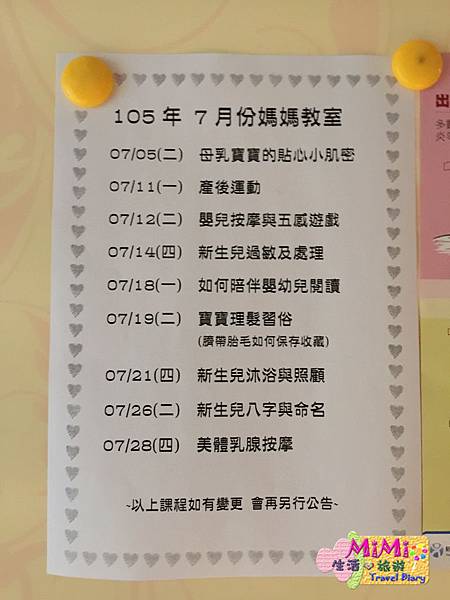 105年 7月份媽媽教室
07/05(二) 母乳寶寶的貼心小肌密
07/11(一) 產後運動
07/12(二) 嬰兒按摩與五感遊戲
07/14(四) 新生兒過敏及處理
07/18(一) 如何陪伴嬰幼兒閱讀
07/19(二) 寶寶理髮習俗
(臍帶胎毛如何保存收藏)
07/21(四) 新生兒沐浴與照顧
07/26(二) 新生兒八字與命名
07/28(四) 美體乳腺按摩
~以上課程如有變更 會再另行公告~
出
多數
MiMi
生活 旅遊
Travel Diary